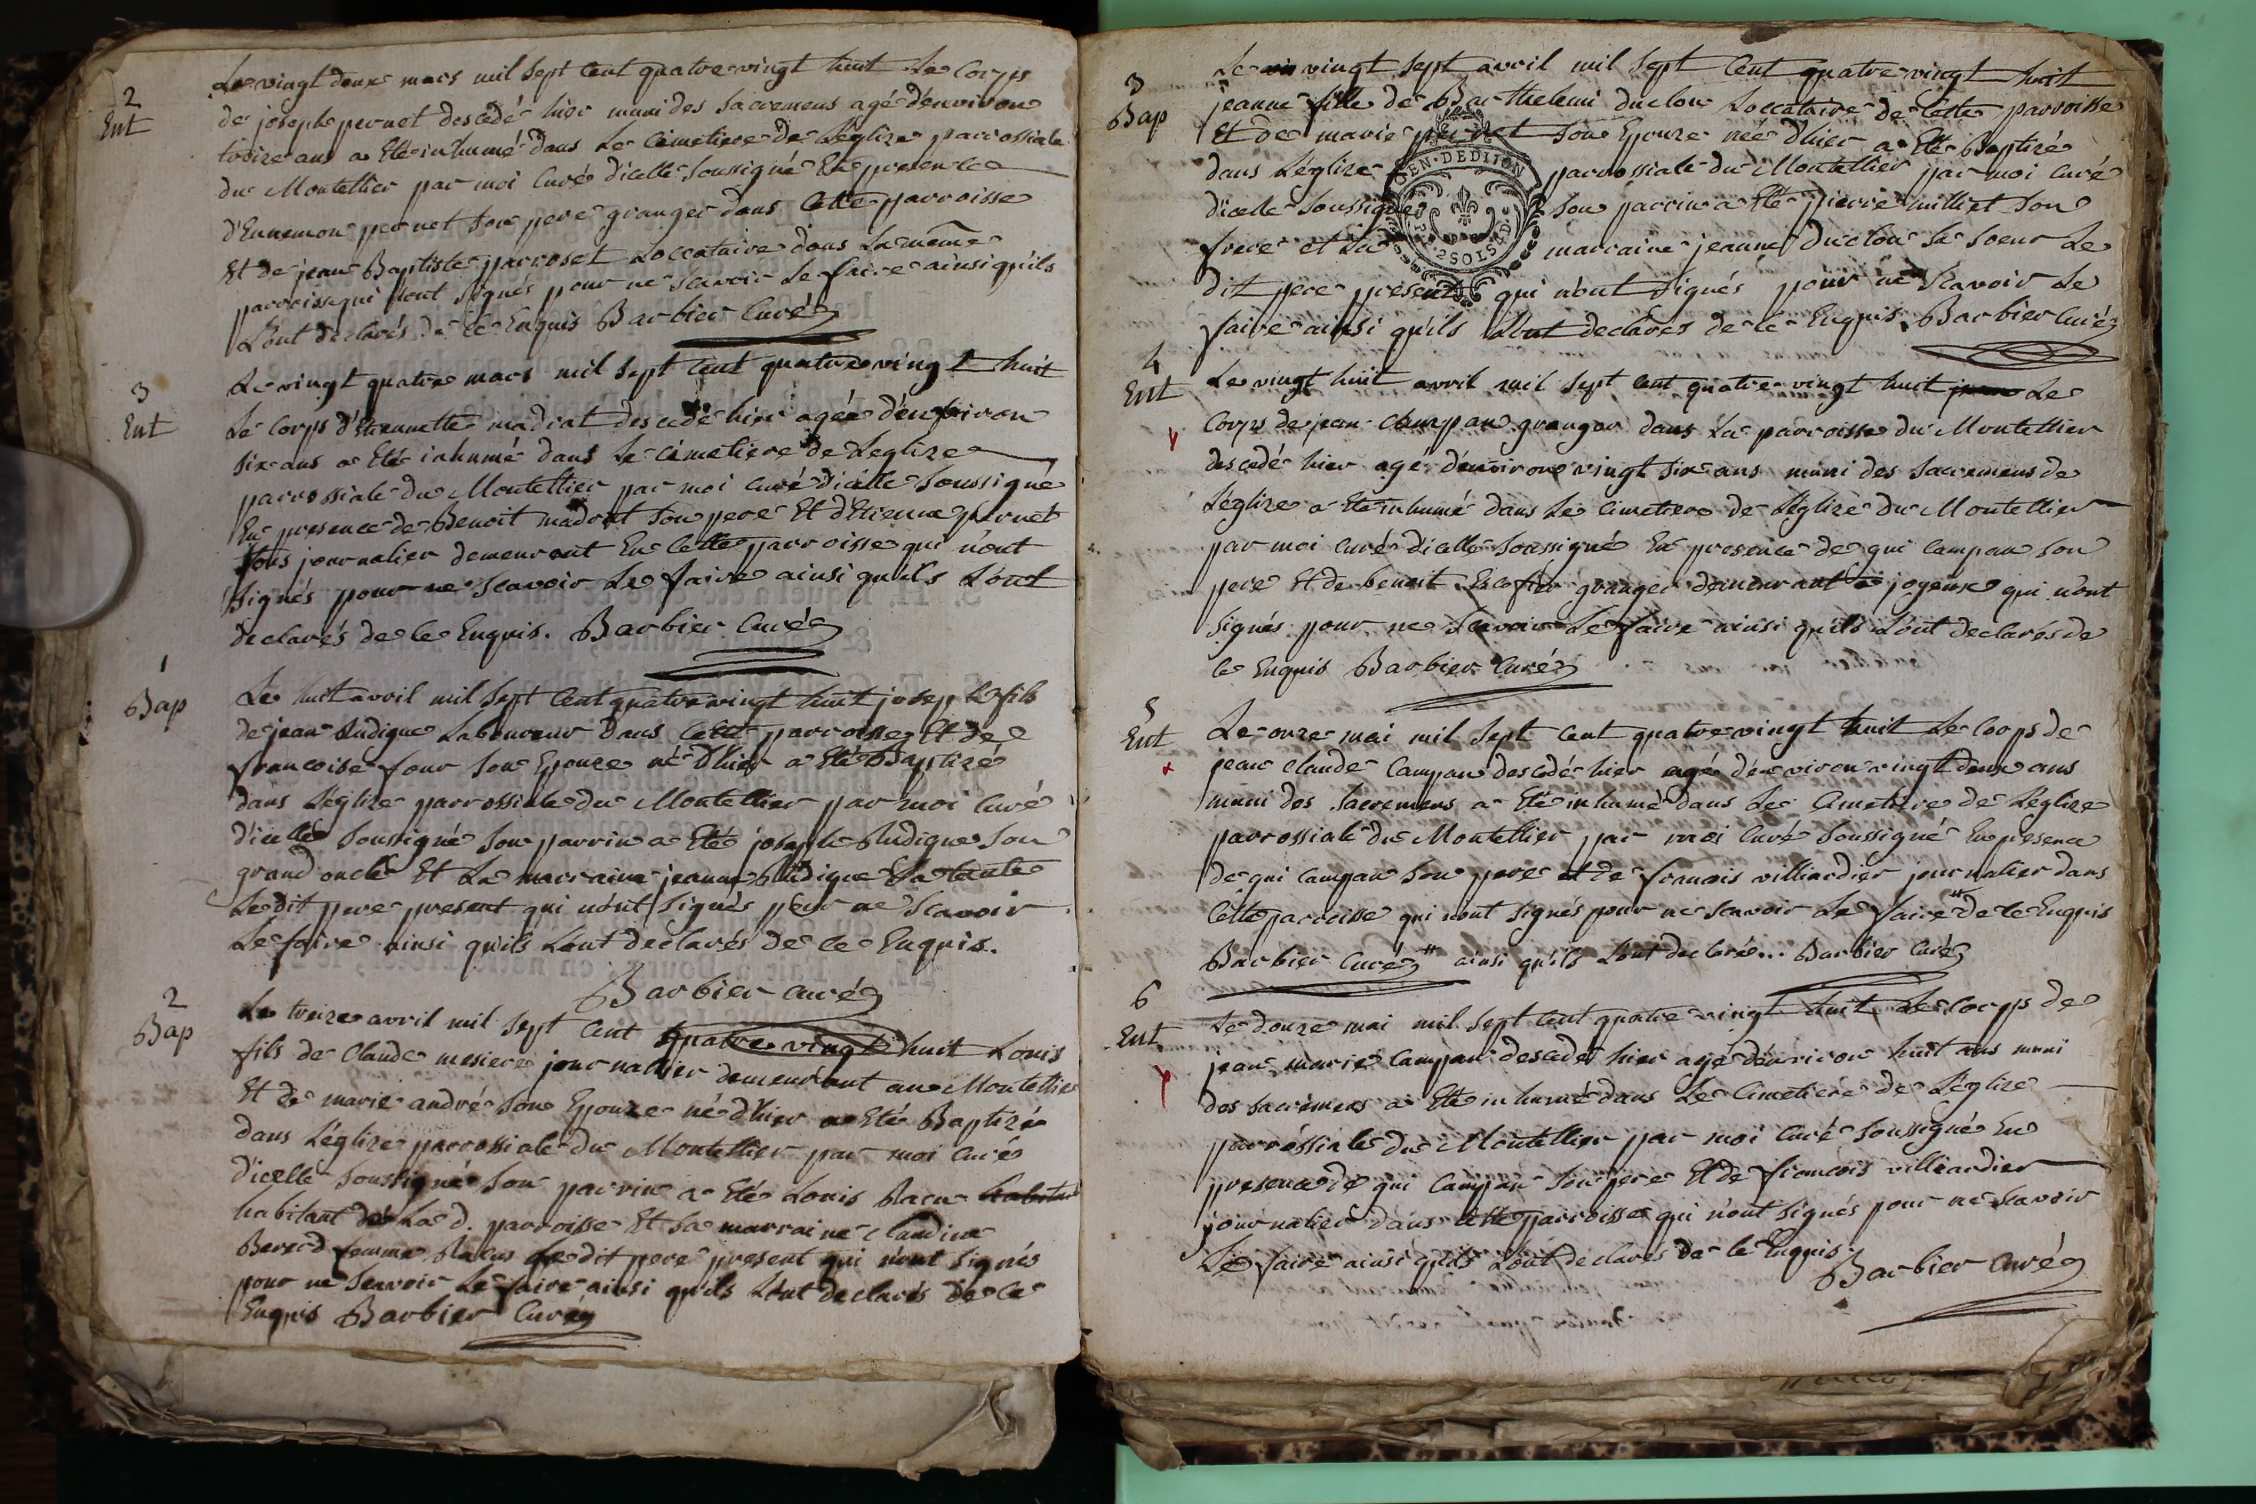 2
Ent
Le vingt deux mars mil sept cent quatre vingt huit Le Corps
de joseph pernet descedé hier muni des sacremens agé d'environ
treize ans a Eté inhumé dans Le Cimetiere de Léglize parrossiale
du Montellier par moi Curé d'icelle soussigné En presence
d'Ennemon pernet son pere granger dans Cette parroisse
Et de jean Baptiste parroset Loccataire dans La même
parroisse qui n'ont signés pour ne scavoir Le faire ainsi qu'ils
L'ont declarés de ce Enquis Barbier Curé
3
Ent
Le vingt quatre mars mil sept cent quatre vingt huit
Le Corps d'Etiennette madrat descedé hier agée d'environ
six ans a Eté inhumé dans Le cimetiere de Leglize
parrossiale du Montellier par moi curé d'icelle soussigné
En presence de Benoit madrat son pere Et d'Etienne pernet
tous journalier demeurant En Cette parroisse qui n'ont
signés pour ne scavoir Le faire ainsi qu'ils L'ont
declarés de ce Enquis. Barbier Curé
1
Bap
Le huit avril mil sept Cent quatre vingt huit joseph fils
de jean Rudigue Laboureur dans Cette parroisse Et de
francoise four son Epouze né d'hier a Eté Baptizé
dans Léglize parrossiale du Montellier par moi Curé
d'icelle soussigné son parrin a Eté joseph Rudigue son
grand oncle Et La marraine jeanne Rudigue Sa tante
Le dit pere present qui n'ont signés pour ne scavoir
Le faire ainsi qu'ils L'ont declarés de ce Enquis.
Barbier curé
2
Bap
Le treize avril mil sept Cent quatre vingt huit Louis
fils de Claude mesiere journallier demeurant au Montellier
Et de marie andré son Epouze né d'hier a Eté Baptizé
dans Léglize parrossiale du Montellier par moi Curé
d'icelle soussigné son parrin a Eté Louis Racu
habitant de La d. parroisse Et Sa marraine Claudine
femme Racus Le dit pere present qui n'ont signés
pour ne scavoir Le faire ainsi qu'ils L'ont declarés de ce
Enquis Barbier Curé
3
Bap
Le vingt sept avril mil sept Cent quatre vingt huit
jeanne fille de Barthelemi duclou Loccataire de Cette parroisse
Et de marie pernet son Epouze née d'hier a Eté Baptizé
dans Léglize parrossiale du Montellier par moi curé
d'icelle soussigné son parrin a Eté pierre milliet son
frere et La marraine jeanne Duclou sa soeur Le
dit pere present qui n'ont signés pour ne scavoir Le
faire ainsi qu'ils L'ont declarés de ce Enquis Barbier Curé
GEN. DE DIJON
2 SOLS 4 D.
4
Ent
Le vingt huit avril mil sept cent quatre vingt huit Le
Corps de jean Campan granger dans La parroisse du Montellier
descedé hier agé d'environ vingt six ans muni des sacremens de
Léglize a Eté inhumé dans Le Cimetiere de Léglize du Montellier
par moi curé d'icelle soussigné En presence de gui Campan son
pere Et de benoit Escofier granger demeurant a joyeux qui n'ont
signés pour ne scavoir Le faire ainsi qu'ils L'ont declarés de
ce Enquis Barbier Curé
5
Ent
Le onze mai mil sept cent quatre vingt huit Le Corps de
jean claude Campan descedé hier agé d'environ vingt deux ans
muni des sacremens a Eté inhumé dans Le Cimetiere de Léglize
parrossiale du Montellier par moi Curé soussigné En presence
de gui campan son pere et de francois villiardier journalier dans
Cette parroisse qui n'ont signés pour ne scavoir Le faire de ce Enquis
Barbier Curé ainsi qu'ils L'ont declaré... Barbier Curé
6
Ent
Le douze mai mil sept cent quatre vingt huit Le Corps de
jean marie Campan descedé hier agé d'environ huit ans muni
des sacremens a Eté inhumé dans Le Cimetiere de Léglize
parrossiale du Montellier par moi curé soussigné En
presence de gui Campan son pere Et de francois villiardier
journalier dans Cette parroisse qui n'ont signés pour ne scavoir
Le faire ainsi qu'ils L'ont declarés de ce Enquis
Barbier curé